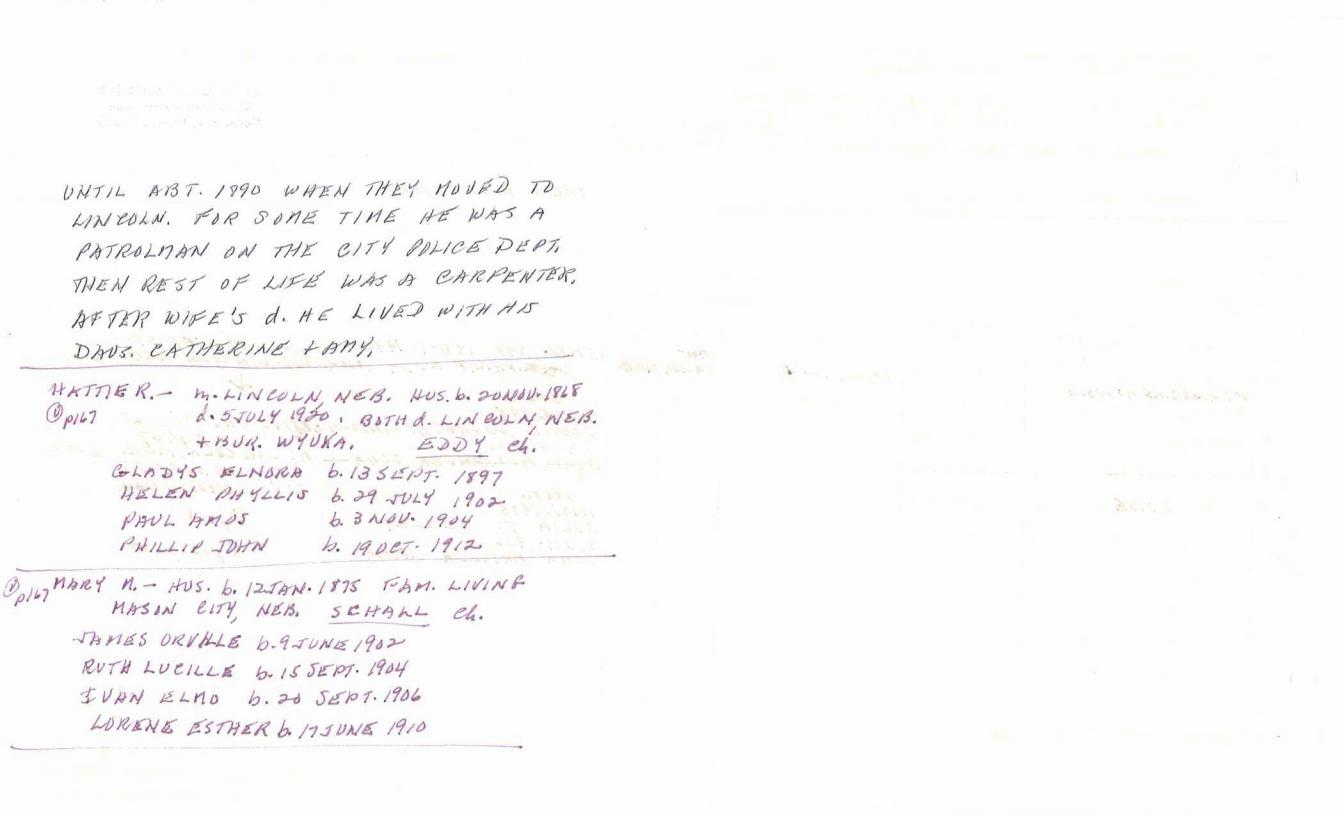 UNTIL ABT. 1890 WHEN THEY MOVED TO
LINCOLN. FOR SOME TIME HE WAS A
PATROLMAN ON THE CITY POLICE DEPT.
THEN REST OF LIFE WAS A CARPENTER.
AFTER WIFE'S d. HE LIVED WITH HIS
DAUS. CATHERINE + AMY.
HATTIE R. — m. LINCOLN, NEB. HUS. b. 20 NOV. 1868
p167 d. 5 JULY 1920. BOTH d. LINCOLN, NEB.
+ BUR. WYUKA. EDDY Ch.
GLADYS ELNORA b. 13 SEPT. 1897
HELEN PHYLLIS b. 29 JULY 1902
PAUL AMOS b. 3 NOV. 1904
PHILLIP JOHN b. 19 OCT. 1912
p167 MARY M. — HUS. b. 12 JAN. 1875 FAM. LIVING
MASON CITY, NEB. SCHALL Ch.
JAMES ORVILLE b. 9 JUNE 1902
RUTH LUCILLE b. 15 SEPT. 1904
IVAN ELMO b. 20 SEPT. 1906
LORENE ESTHER b. 17 JUNE 1910